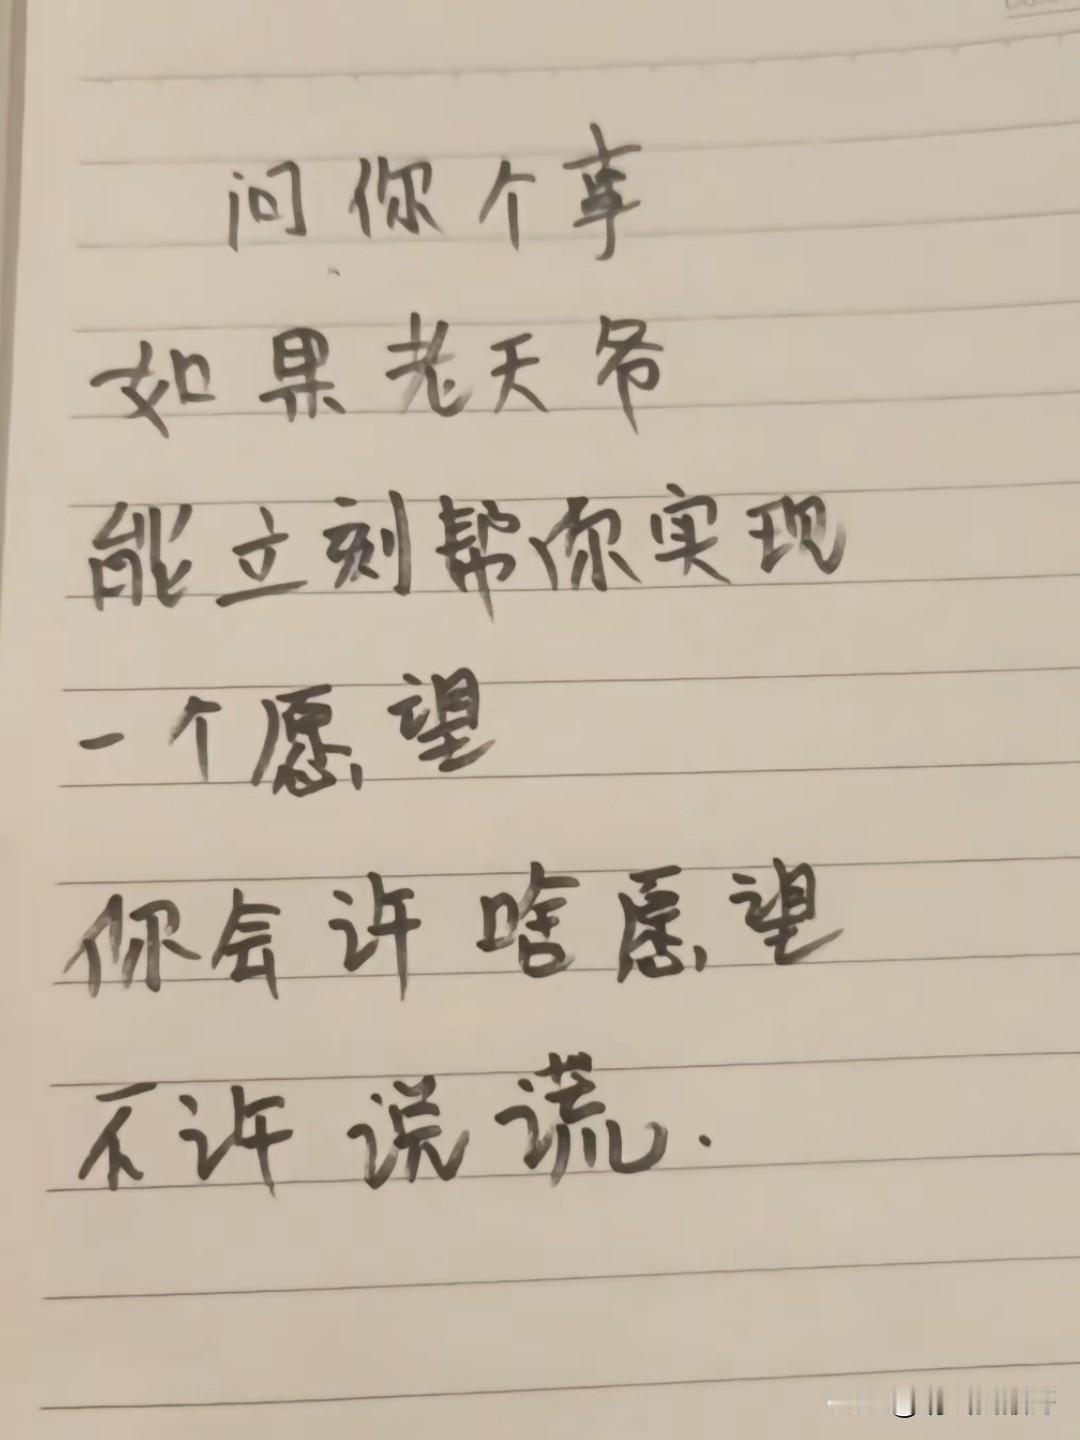 问你个事
如果老天爷
能立刻帮你实现
一个愿望
你会许啥愿望
不许说谎.